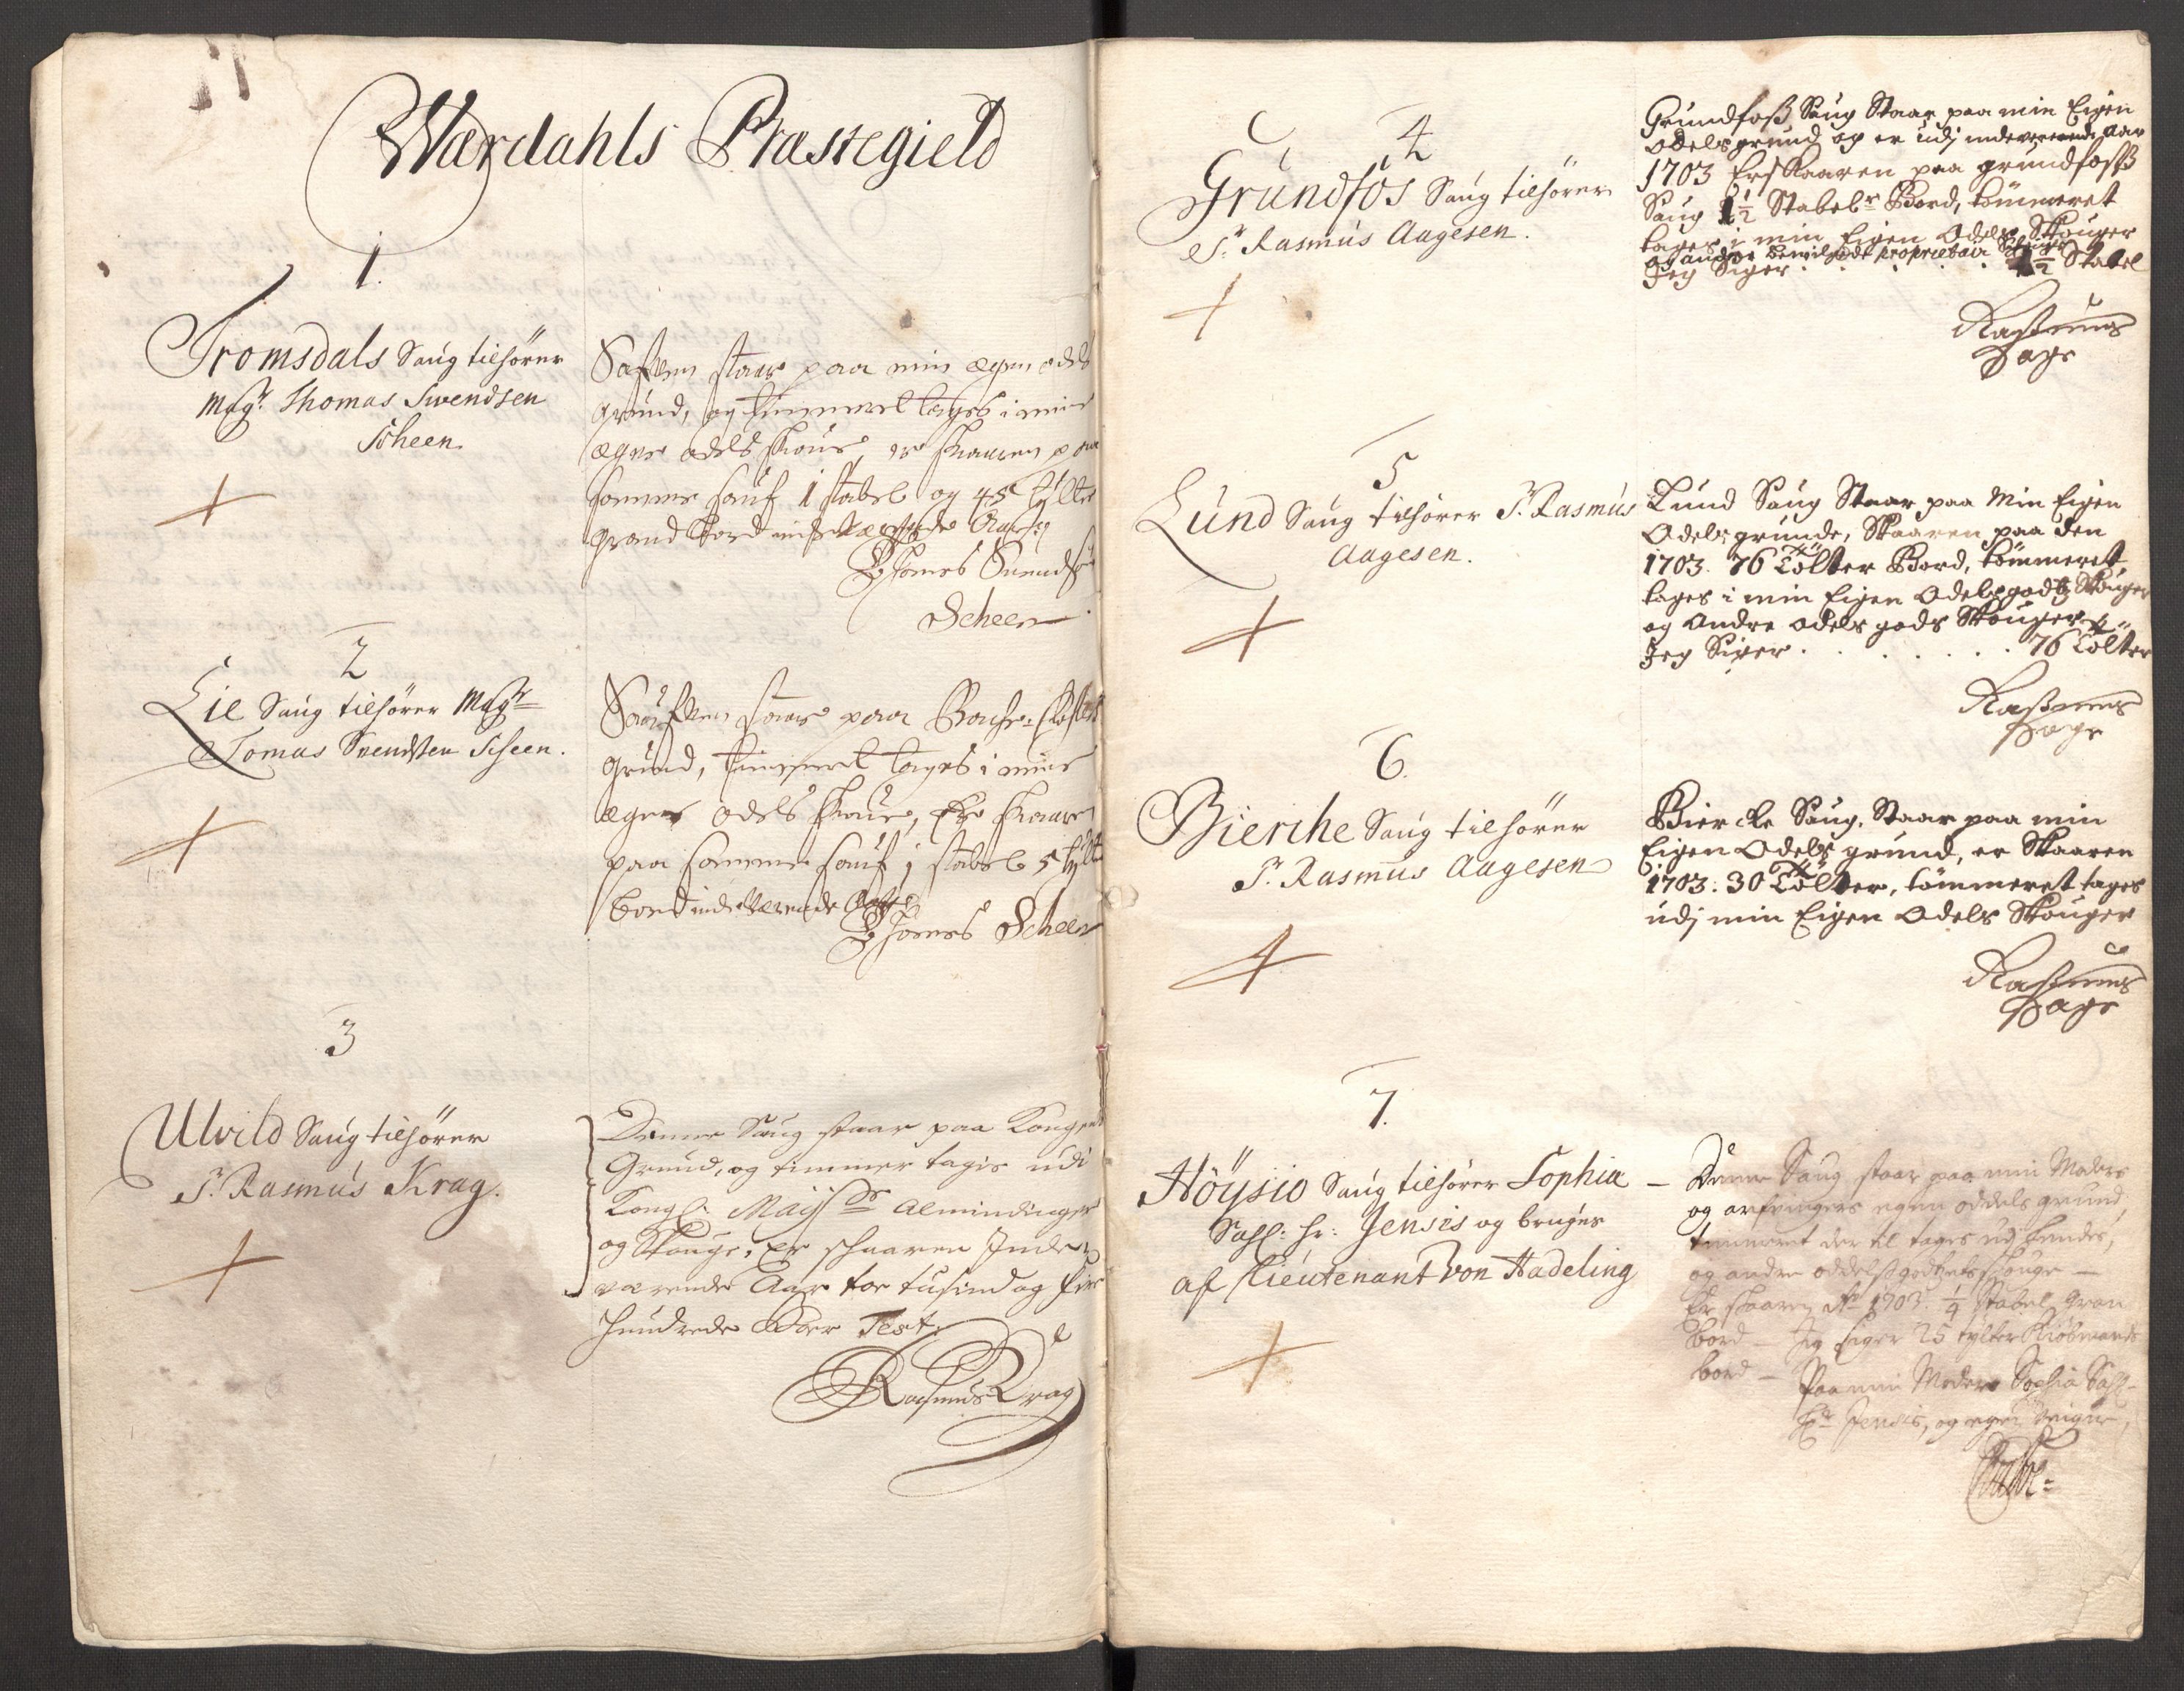 Wærdahls Præstegield
1.
Tromsdals Saug tilhører
Magr. Thomas Swendsen
Scheen
Saffuen staar paa min ægen odels
grund, og timmeret tages i mine
ægne odels skoue, er skaaren paa
samme sauf 1 stabel og 45 tylter
grand bord indeværende Aar
Thomes Suends
Scheen
2
Lie Saug tilhører Magr
Tomas Svendsen Scheen.
Saufuen staar paa
grund, timmeret tages i mine
ægne odels skoue, er skaaren
paa samme sauf 1 stabel 5 tylt
bord indeværende Aar
Thomes Scheen
3
Ulvild Saug tilhører
Sr. Rasmus Krag.
Denne Saug staar paa Kongens
Grund, og timmer tagis udi
Kongl: Maijts Almindinger
og Skouge, Er schaaren Inde
værende Aar toe tusind og fire
hundrede Bor Test.
Rasmus Krag
4
Grundfos Saug tilhører
Sr. Rasmus Aagesen.
Grundfoss Saug Staar paa min Eigen
Odels grund og er udj indeverende Aar
1703 Er Skaaren paa grundfoss
Saug 1½ Stabelr Bord, tømmeret
tages i min Eigen Odels Skouger
og andre bevilgede proprietair
Jeg Siger . . . . . 1½ Stabel
Rassmus
Aage
5
Lund Saug tilhører Sr. Rasmus
Aagesen.
Lund Saug Staar paa Min Eigen
Odels grunde, Skaaren paa den
1703. 76 Tölter Bord, tømmeret
tages i min Eigen Odelsgodtz Skouger
og Andre odels gods Skouger
Jeg Siger . . . . . . . 76 Tölter
Rassmus
Aage
6.
Bierche Saug tilhører
Sr. Rasmus Aagesen
Biercke Saug, Staar paa min
Eigen Odels grund, er Skaaren
1703: 30 Tölter, tømmeret tages
udj min Eigen Odels Skouger
Rassmus
Aage
7.
Höysio Saug tilhører Sophia
Sahl: hr: Jensis og bruges
af Lieutenant Von Hadeling
Denne Saug staar paa min Moders
og arfvingers egen oddels grund,
tømmeret der til tages udj hendes,
og andre oddelsgodtzets skouge —
Er skaaren Ao 1703. ¼ Stabel gran
bord — Jeg siger 25 tylter Kiøbmands
bord — Paa min Moders Sophia Sahl
Hr Jensis, og egne Veigne,